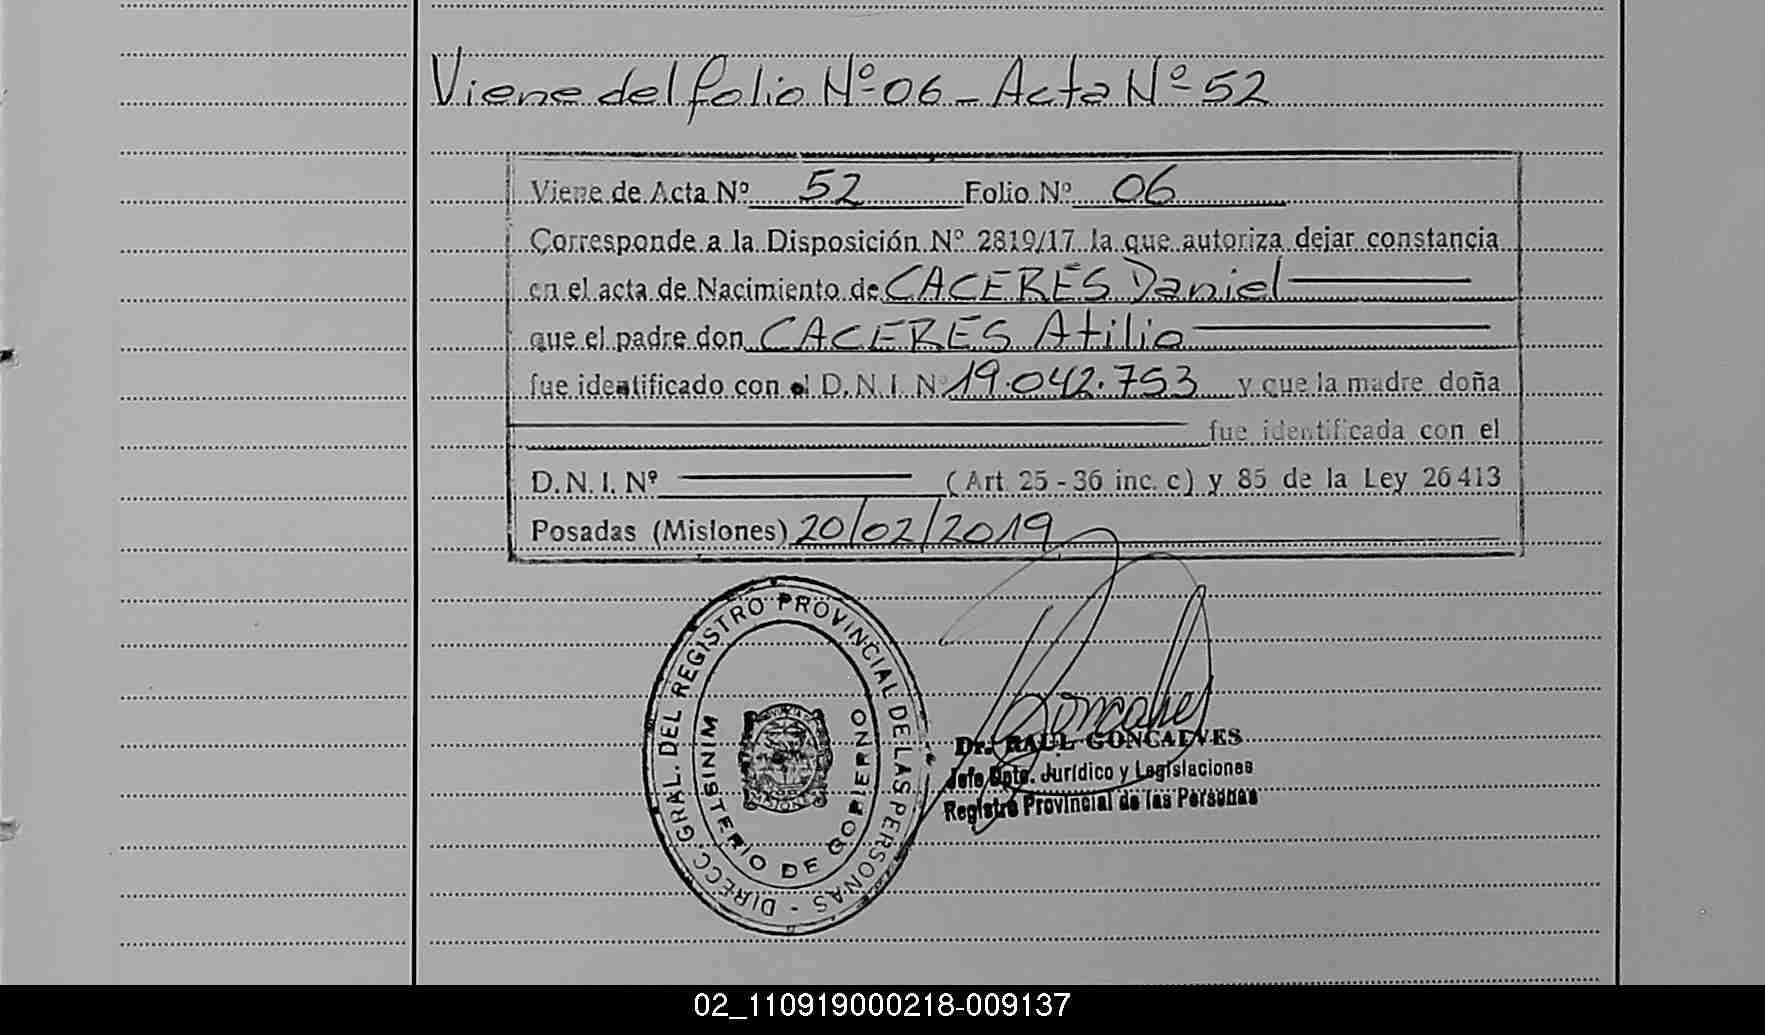 Viene del folio Nº 06 - Acta Nº 52
Viene de Acta Nº 52 Folio Nº 06
Corresponde a la Disposición Nº 2819/17 la que autoriza dejar constancia
en el acta de Nacimiento de CACERES Daniel
que el padre don CACERES Atilio
fue identificado con el D.N.I. Nº 19.042.753 y que la madre doña
fue identificada con el
D.N.I. Nº (Art 25 - 36 inc. c) y 85 de la Ley 26413
Posadas (Misiones) 20/02/2019
DIRECC. GRAL. DEL REGISTRO PROVINCIAL DE LAS PERSONAS -
MINISTERIO DE GOBIERNO
PROVINCIA DE
MISIONES
Goncalves
Dr. RAUL GONCALVES
Jefe Dpto. Jurídico y Legislaciones
Registro Provincial de las Personas
02_110919000218-009137